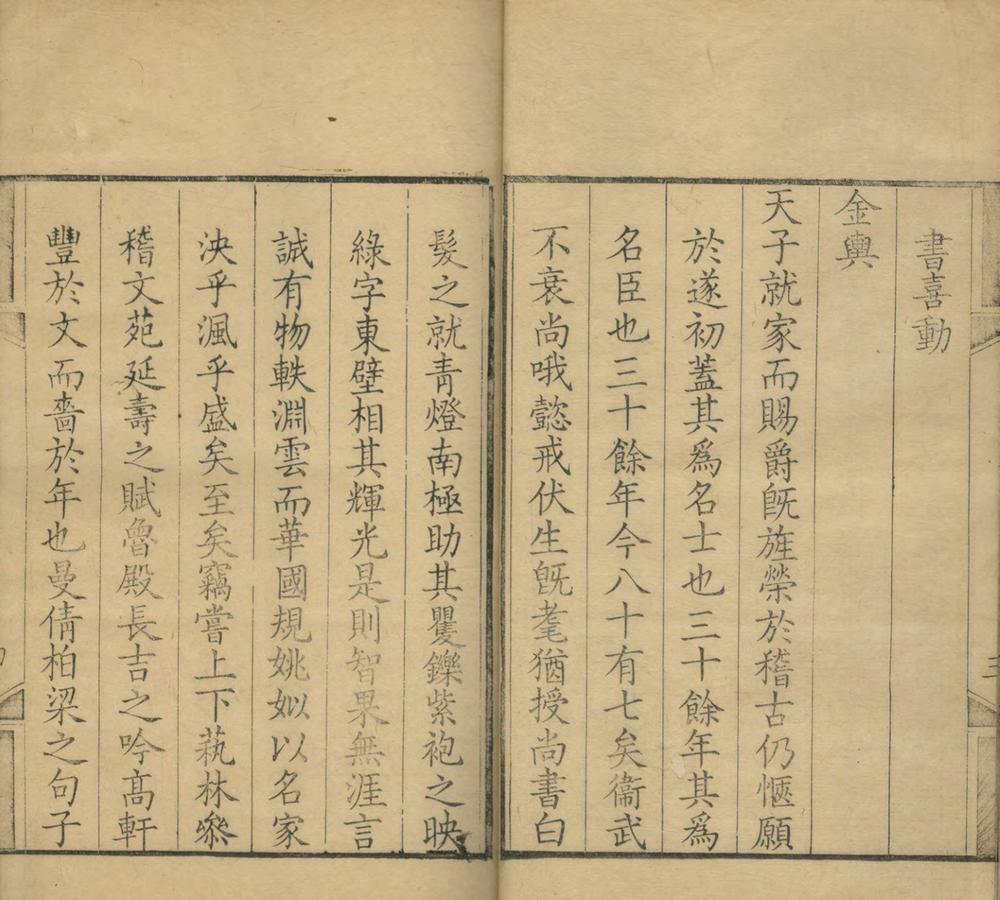 書喜動
金輿
天子就家而賜爵旣旌榮於稽古仍愜願
於遂初蓋其爲名士也三十餘年其爲
名臣也三十餘年今八十有七矣衞武
不衰尚哦懿戒伏生旣耄猶授尚書白
髮之就青燈南極助其矍鑠紫袍之映
綠字東壁相其輝光是則智果無涯言
誠有物軼淵雲而華國規姚姒以名家
泱乎渢乎盛矣至矣竊嘗上下蓺林叅
稽文苑延壽之賦魯殿長吉之吟高軒
豐於文而嗇於年也曼倩柏梁之句子